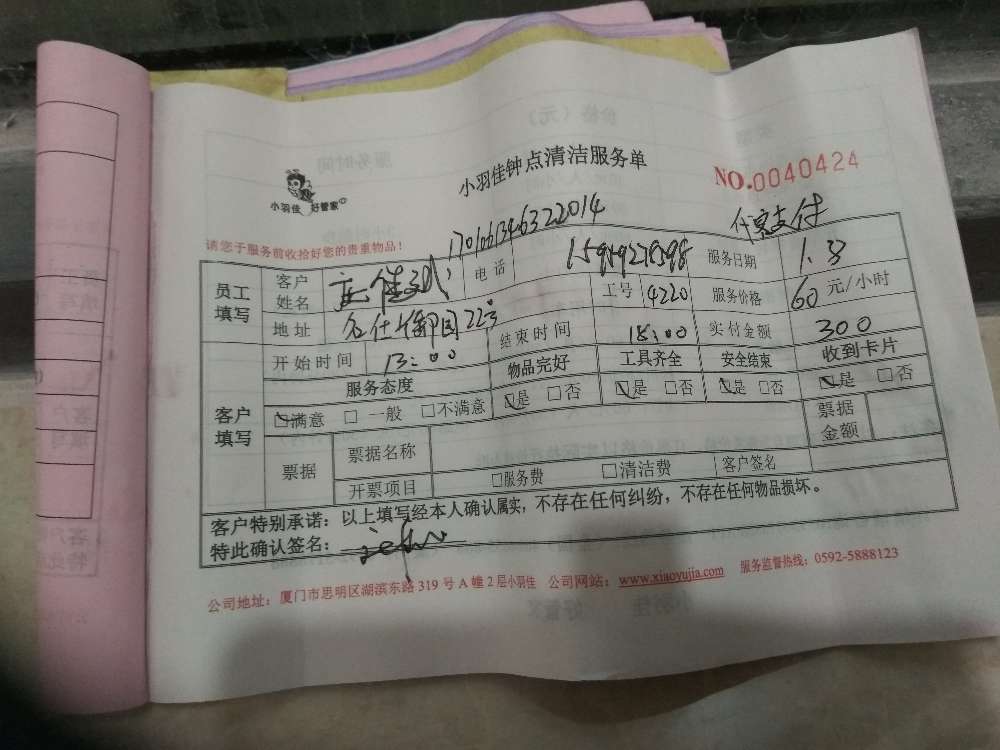 小羽佳钟点清洁服务单
NO.0040424
小羽佳 好管家
请您于服务前收拾好您的贵重物品！
员工填写
客户姓名
电话
服务日期 1.3
地址
工号 4220
服务价格 60 元/小时
开始时间 13:00
结束时间 18:00
实付金额 300
客户填写
服务态度 物品完好 工具齐全 安全结束 收到卡片
☑满意 □ 一般 □不满意 ☑是 □否 ☑是 □否 ☑是 □否 ☑是 □否
票据
票据名称
票据金额
开票项目 □服务费 □清洁费 客户签名
客户特别承诺：以上填写经本人确认属实，不存在任何纠纷，不存在任何物品损坏。
特此确认签名：
公司地址：厦门市思明区湖滨东路 319 号 A 幢 2 层小羽佳 公司网站：www.xiaoyujia.com 服务监督热线：0592-5888123